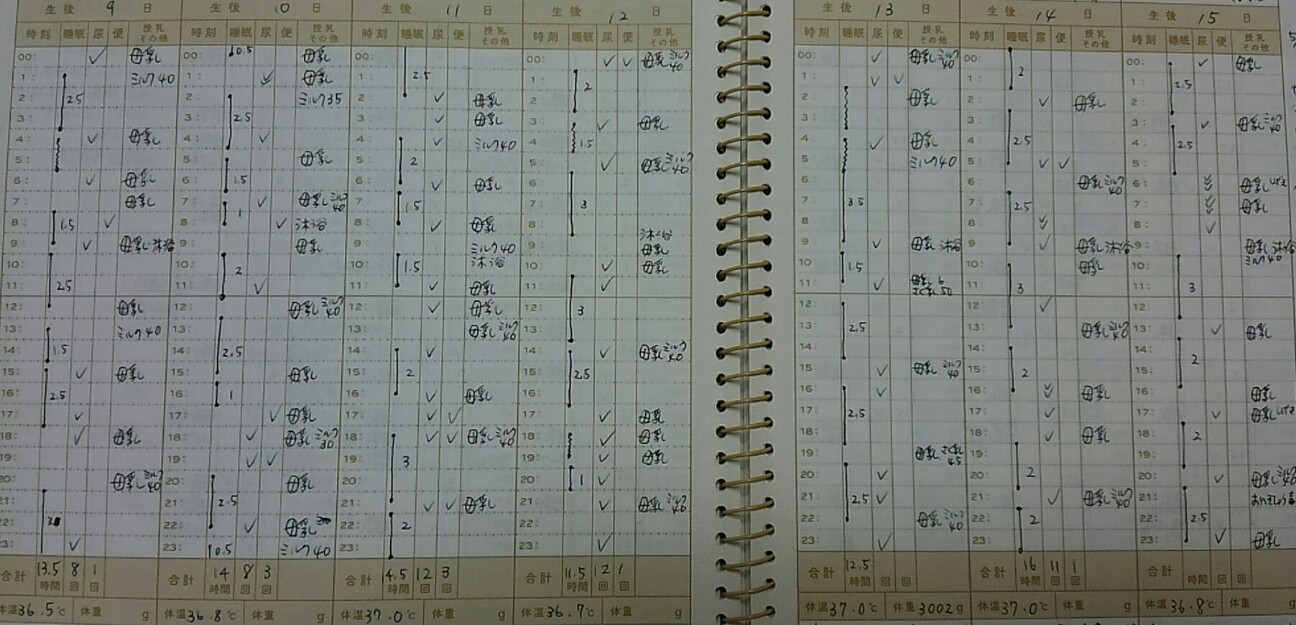 生後 9 日
時刻 睡眠 尿 便 授乳その他
00: 母乳
1: ミルク40
2: 2.5
3:
4: 母乳
5:
6: 母乳
7: 母乳
8: 1.5
9: 母乳 沐浴
10:
11: 2.5
12: 母乳
13: ミルク40
14: 1.5
15: 母乳
16: 2.5
17:
18: 母乳
19:
20: 母乳 ミルク40
21:
22:
23:
合計 13.5時間 8回 1回
体温36.5℃ 体重 g
生後 10 日
時刻 睡眠 尿 便 授乳その他
00: 0.5 母乳
1: 母乳
2: ミルク35
3: 2.5
4:
5: 母乳
6: 1.5
7: 1 母乳 ミルク40
8: 沐浴
9: 母乳
10: 2
11:
12: 母乳 ミルク40
13:
14: 2.5
15: 母乳
16: 1
17: 母乳
18: 母乳 ミルク30
19:
20: 母乳
21: 2.5
22: 母乳
23: 0.5 ミルク40
合計 14時間 8回 3回
体温36.8℃ 体重 g
生後 11 日
時刻 睡眠 尿 便 授乳その他
00:
1: 2.5
2: 母乳
3: 母乳
4: ミルク40
5: 2
6: 母乳
7: 1.5
8: 母乳
9: ミルク40
10: 1.5 沐浴
11: 母乳
12: 母乳
13: 母乳 ミルク40
14:
15: 2
16: 母乳
17:
18: 母乳 ミルク40
19: 3
20:
21: 母乳
22: 2
23:
合計 14.5時間 12回 3回
体温37.0℃ 体重 g
生後 12 日
時刻 睡眠 尿 便 授乳その他
00: 母乳 ミルク40
1: 2
2:
3: 母乳
4: 1.5
5: 母乳 ミルク40
6:
7: 3
8: 沐浴
9: 母乳
10: 母乳
11:
12: 3
13:
14: 母乳 ミルク40
15: 2.5
16:
17: 母乳
18: 母乳
19: 母乳
20: 1
21: 母乳 ミルク40
22:
23:
合計 11.5時間 12回 1回
体温36.7℃ 体重 g
生後 13 日
時刻 睡眠 尿 便 授乳その他
00: 母乳 ミルク40
1:
2: 母乳
3:
4: 母乳
5: ミルク40
6:
7: 3.5
8:
9: 母乳 沐浴
10: 1.5
11: 母乳 6
さく乳 50
12:
13: 2.5
14:
15: 母乳 ミルク40
16:
17: 2.5
18:
19: 母乳 さく乳45
20:
21: 2.5
22: 母乳 ミルク40
23:
合計 12.5時間 回 回
体温37.0℃ 体重3002g
生後 14 日
時刻 睡眠 尿 便 授乳その他
00:
1: 2
2: 母乳
3:
4: 2.5
5:
6: 母乳 ミルク40
7: 2.5
8:
9: 母乳 沐浴
10: 母乳
11: 3
12:
13: 母乳 ミルク40
14:
15: 2
16: 母乳
17:
18: 母乳
19:
20: 2
21: 母乳 ミルク40
22: 2
23:
合計 16時間 11回 1回
体温37.0℃ 体重 g
生後 15 日
時刻 睡眠 尿 便 授乳その他
00: 母乳
1: 2.5
2:
3: 母乳 ミルク40
4: 2.5
5:
6: 母乳
7: 母乳
8:
9: 母乳 沐浴
10: ミルク40
11: 3
12:
13: 母乳
14: 2
15:
16: 母乳
17: 母乳
18: 2
19:
20: 母乳 ミルク40
21:
22: 2.5
23: 母乳
合計 時間 回 回
体温36.8℃ 体重 g